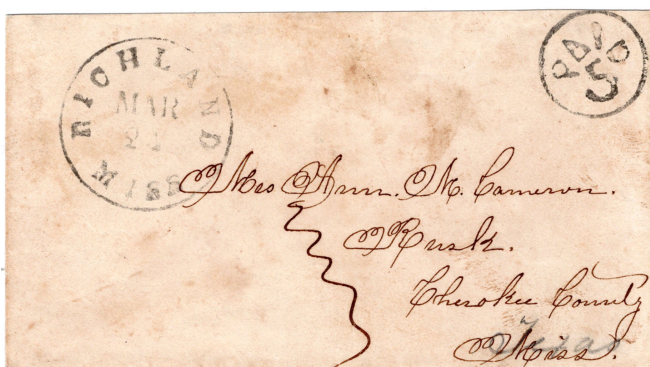 RICHLAND
MAR
MISS
PAID
5
Mrs Ann. M. Cameron.
Rusk.
Cherokee County
Texas
Miss.